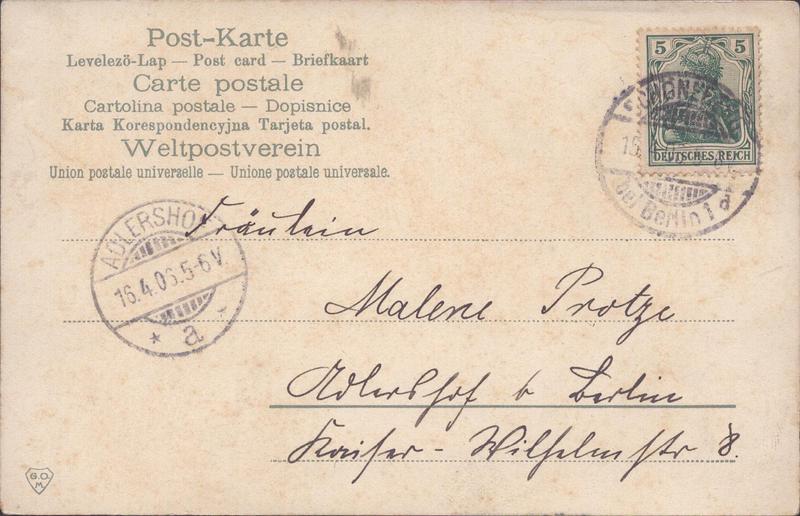 Post-Karte
Levelező-Lap — Post card — Briefkaart
Carte postale
Cartolina postale — Dopisnice
Karta Korespondencyjna Tarjeta postal.
Weltpostverein
Union postale universelle — Unione postale universale.
5 5
DEUTSCHES REICH
bei Berlin 1 d
ADLERSHOF
16.4.06.5-6V.
* a
Fräulein
Malene Protze
Adlershof b Berlin
Kaiser-Wilhelmstr 8.
G.O.
M.